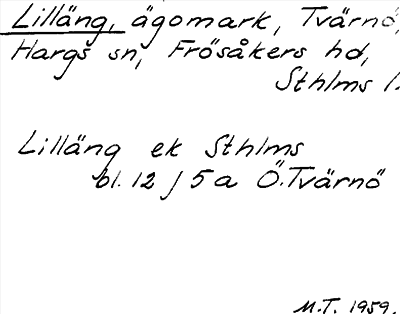 Lilläng, ägomark, Tvärnö,
Hargs sn, Frösåkers hd,
Sthlms l.
Lilläng ek Sthlms
bl. 12 J 5a Ö. Tvärnö
M.T. 1959.